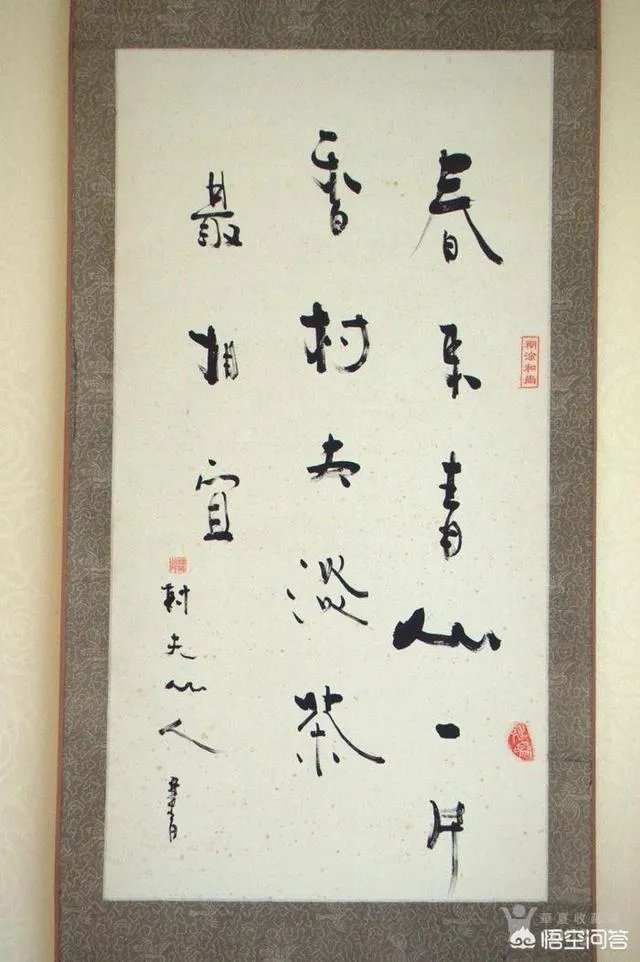 春来青山一片
香村夫淡茶
最相宜
夫山人
糊涂和尚
華夏收藏網
悟空问答